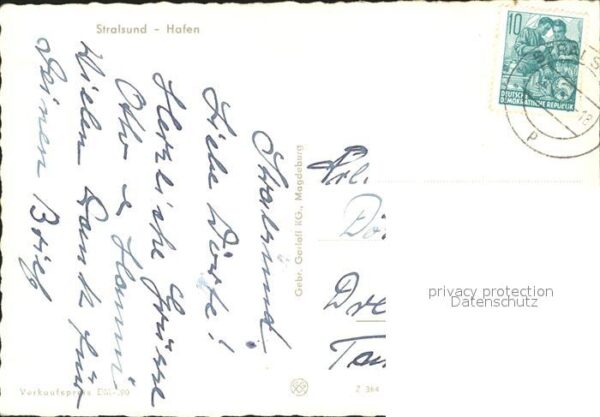 Stralsund - Hafen
Stralsund.
Liebe Dörte!
Herzliche Grüsse
Otto & Hanni
Vielen Dank für
Deinen Brief
Gebr. Gerloff KG., Magdeburg
10
DEUTSCHE
DEMOKRATISCHE REPUBLIK
STRALS
Frl.
Dö
Dre
Tan
privacy protection
Datenschutz
Verkaufspreis DM -.20
Z 364